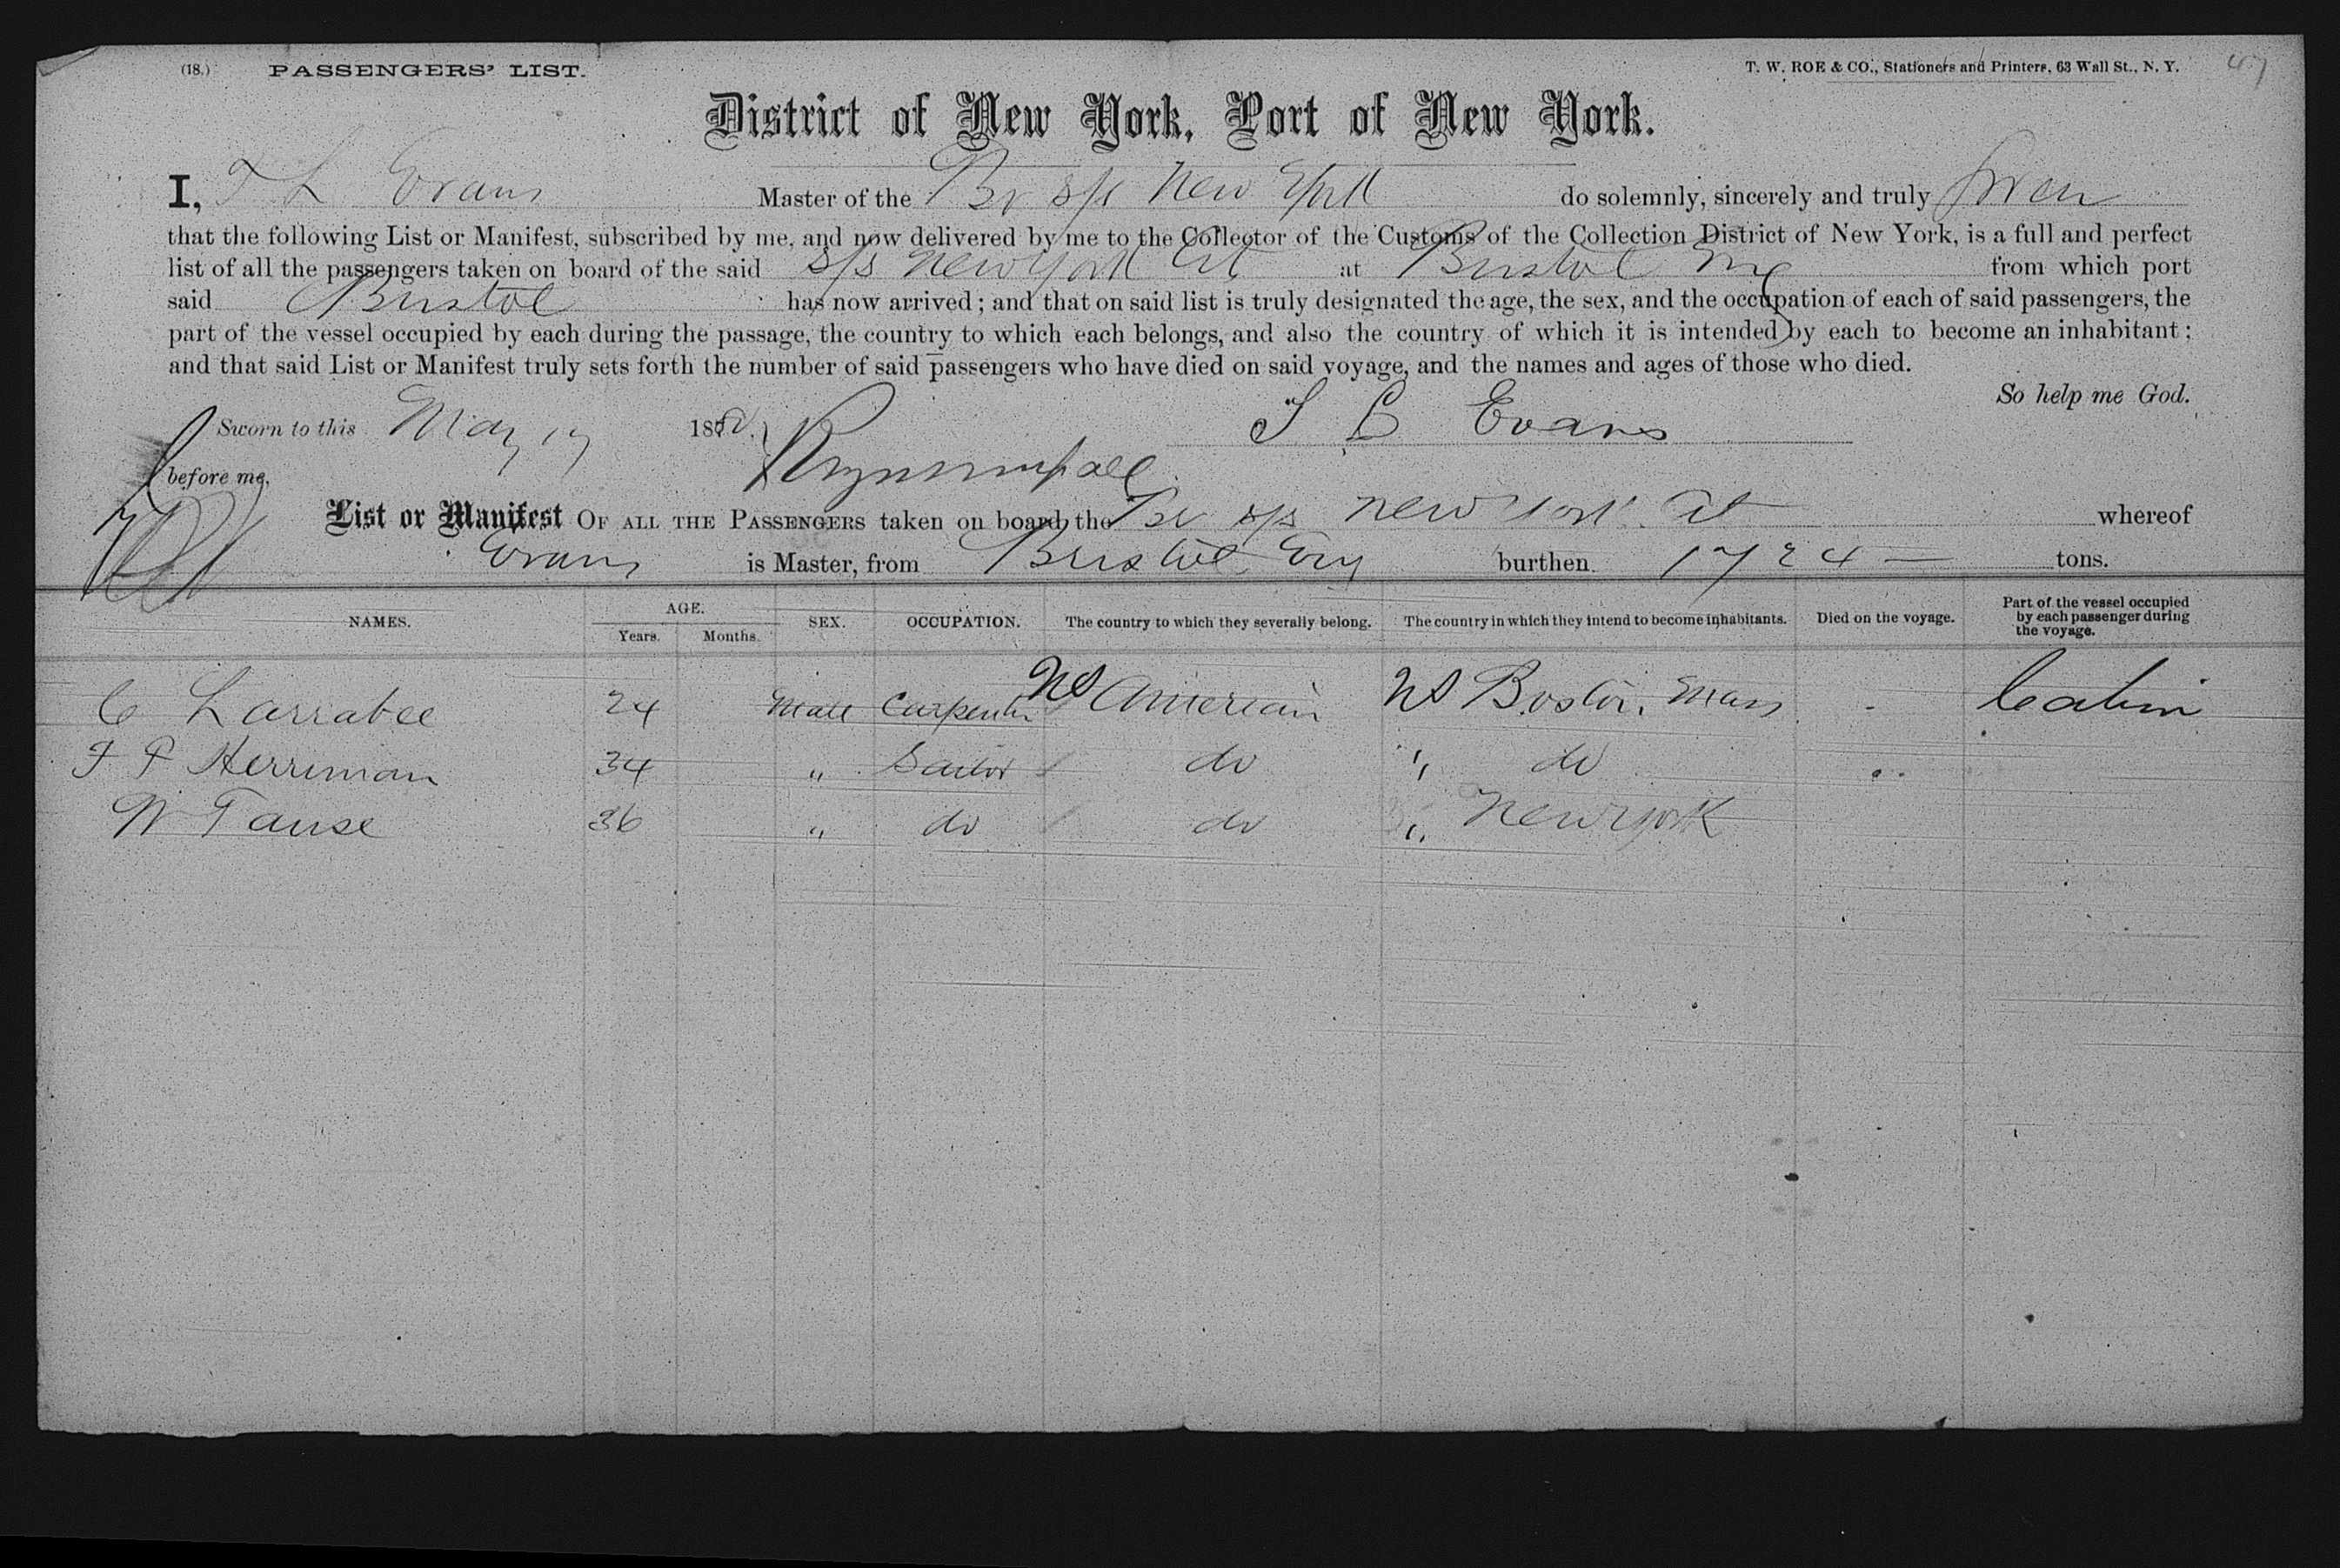 (18.) PASSENGERS' LIST. T. W. ROE & CO., Stationers and Printers, 63 Wall St., N. Y. 47
District of New York, Port of New York.
I, T L Evans Master of the Br s/s New York do solemnly, sincerely and truly swear
that the following List or Manifest, subscribed by me, and now delivered by me to the Collector of the Customs of the Collection District of New York, is a full and perfect
list of all the passengers taken on board of the said s/s New York at Bristol from which port
said Bristol has now arrived; and that on said list is truly designated the age, the sex, and the occupation of each of said passengers, the
part of the vessel occupied by each during the passage, the country to which each belongs, and also the country of which it is intended by each to become an inhabitant;
and that said List or Manifest truly sets forth the number of said passengers who have died on said voyage, and the names and ages of those who died.
So help me God.
Sworn to this May 17 188 T L Evans
before me,
List or Manifest OF ALL THE PASSENGERS taken on board the Br s/s New York whereof
Evans is Master, from Bristol Eng burthen 1724 — tons.
NAMES. AGE. Years. Months. SEX. OCCUPATION. The country to which they severally belong. The country in which they intend to become inhabitants. Died on the voyage. Part of the vessel occupied by each passenger during the voyage.
C Larrabee 24 Male Carpenter US American US Boston, Mass - Cabin
F P Herriman 34 " Sailor do " do
W Tause 36 " do do " New York